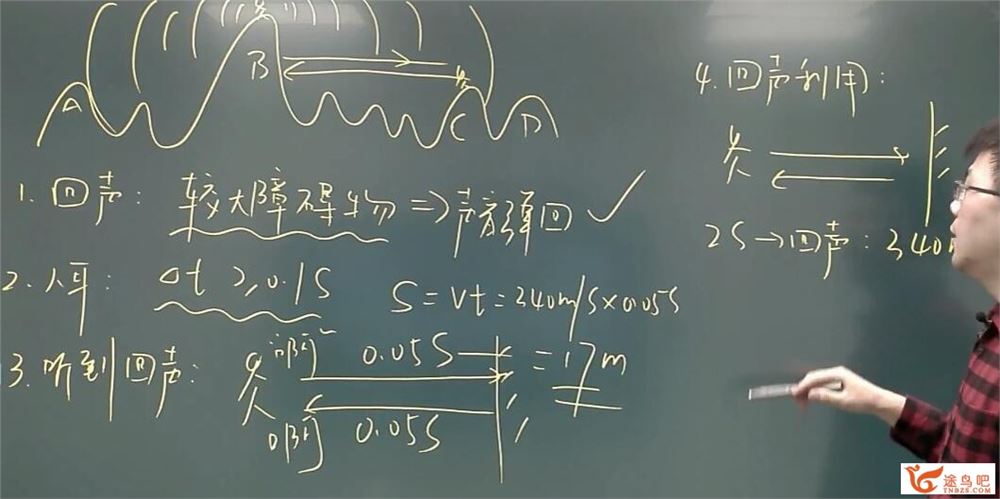 A B C D
1. 回声: 较大障碍物 ⇒ 声音弹回 ✓
2. 人耳: Δt ≥ 0.1S
S = Vt = 340m/s×0.05s
= 17m
3. 听到回声:
啊~ 0.05S
啊 0.05S
4. 回声利用:
2S→回声: 340
途鸟吧
TNBZS.COM